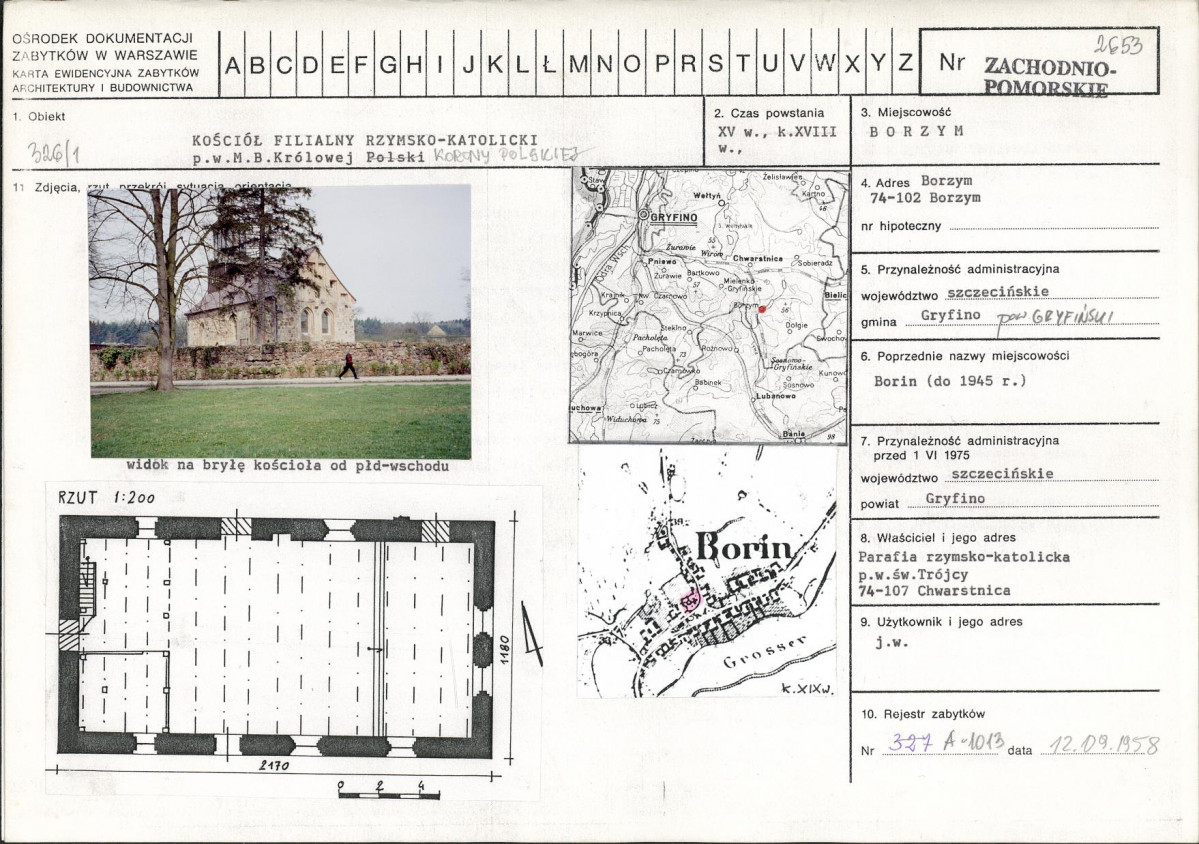 OŚRODEK DOKUMENTACJI
ZABYTKÓW W WARSZAWIE
KARTA EWIDENCYJNA ZABYTKÓW
ARCHITEKTURY I BUDOWNICTWA
A B C D E F G H I J K L Ł M N O P R S T U V W X Y Z
Nr
2653
ZACHODNIO-
POMORSKIE
1. Obiekt
326/1
KOŚCIÓŁ FILIALNY RZYMSKO-KATOLICKI
p.w.M.B.Królowej Polski KORONY POLSKIEJ
2. Czas powstania
XV w., k.XVIII
w.,
3. Miejscowość
BORZYM
11 Zdjęcia, rzut, przekrój, sytuacja, orientacja
widok na bryłę kościoła od płd-wschodu
4. Adres Borzym
74-102 Borzym
nr hipoteczny
5. Przynależność administracyjna
województwo szczecińskie
gmina Gryfino pow GRYFIŃSKI
6. Poprzednie nazwy miejscowości
Borin (do 1945 r.)
7. Przynależność administracyjna
przed 1 VI 1975
województwo szczecińskie
powiat Gryfino
8. Właściciel i jego adres
Parafia rzymsko-katolicka
p.w.św.Trójcy
74-107 Chwarstnica
9. Użytkownik i jego adres
j.w.
10. Rejestr zabytków
Nr 327 A-1013 data 12.09.1958
Żelisławiec
Wełtyń
Kartno
46
GRYFINO
Żurawie
55
Wirów
Pniewo
Chwarstnica
Sobieradz
Żurawie
Bartkowo
57
Mielenko-
Gryfińskie
Krajnik
Czarnowo
Borzym
56
Bielic
Krzypnica
Dolgie
Marwice
Steklno
Pacholęta
Pacholęta
Rożnowo
73
Czarnówko
Sosnowo-
Gryfińskie
Babinek
Sosnowo
Kunowo
Lubanowo
Lubicz
Widuchowa
75
Bania
98
Borin
Grosser
k.XIXw.
RZUT 1:200
1180
2170
0 2 4